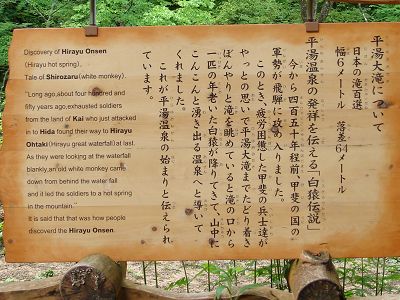 Discovery of Hirayu Onsen
(Hirayu hot spring),
Tale of Shirozaru(white monkey).
"Long ago,about four hundred and
fifty years ago,exhausted soldiers
from the land of Kai who just attacked
in to Hida found their way to Hirayu
Ohtaki(Hirayu great waterfall)at last.
As they were looking at the waterfall
blankly,an old white monkey came
down from behind the water fall
and it led the soldiers to a hot spring
in the mountain."
It is said that that was how people
discoverd the Hirayu Onsen.
平湯大滝について
日本の滝百選
幅6メートル 落差64メートル
平湯温泉の発祥を伝える「白猿伝説」
今から四百五十年程前、甲斐の国の
軍勢が飛騨に攻め入りました。
このとき、疲労困憊した甲斐の兵士達が
やっとの思いで平湯大滝までたどり着き
ぼんやりと滝を眺めていると滝の口から
一匹の年老いた白猿が降りてきて、山中に
こんこんと湧き出る温泉へと導いて
くれました。
これが平湯温泉の始まりと伝えられ
ています。